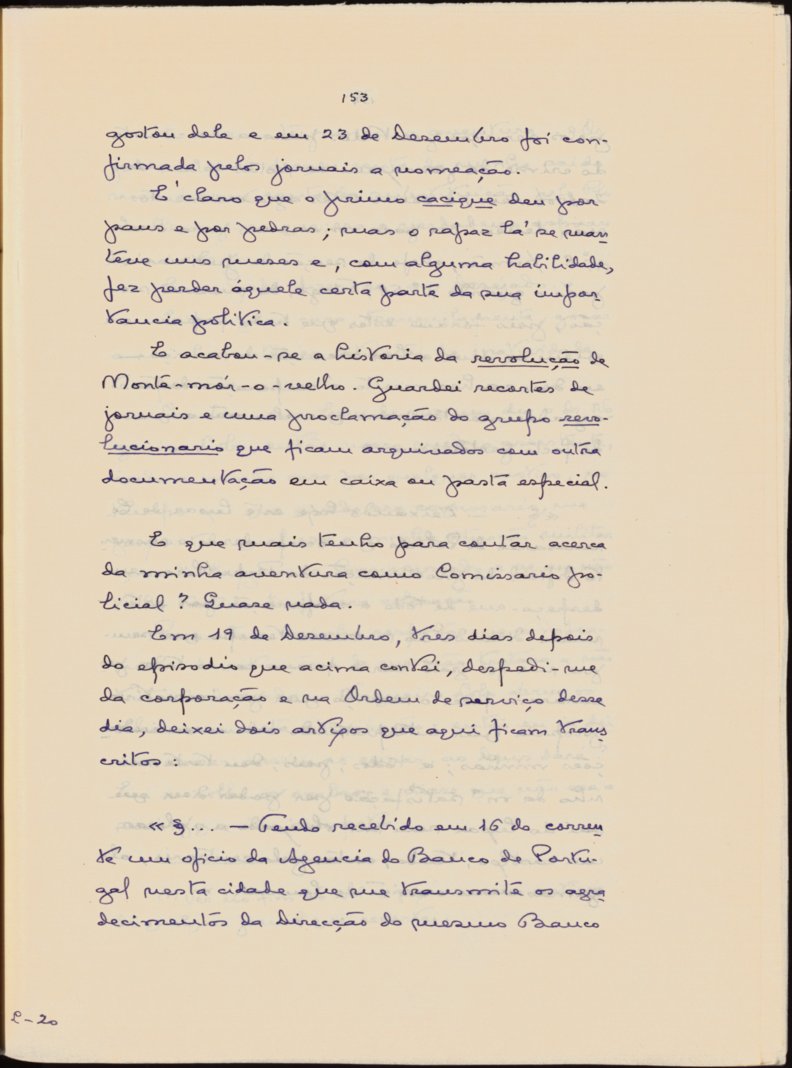 153
gostou dele e em 23 de Dezembro foi con-
firmada pelos jornais a nomeação.
E' claro que o primo cacique deu por
paus e por pedras; mas o rapaz lá se man-
teve uns meses e, com alguma habilidade,
fez perder áquele certa parte da sua impor-
tancia politica.
E acabou-se a historia da revolução de
Monte-mór-o-velho. Guardei recortes de
jornais e uma proclamação do grupo revo-
lucionario que ficam arquivados com outra
documentação em caixa ou pasta especial.
E que mais tenho para contar acerca
da minha aventura como Comissario po-
licial? Quase nada.
Em 19 de Dezembro, tres dias depois
do episodio que acima contei, despedi-me
da corporação e na Ordem de serviço desse
dia, deixei dois artigos que aqui ficam trans-
critos:
«§... — Tendo recebido em 16 do corren-
te um oficio da Agencia do Banco de Portu-
gal nesta cidade que me transmite os agra-
decimentos da Direcção do mesmo Banco
L-20